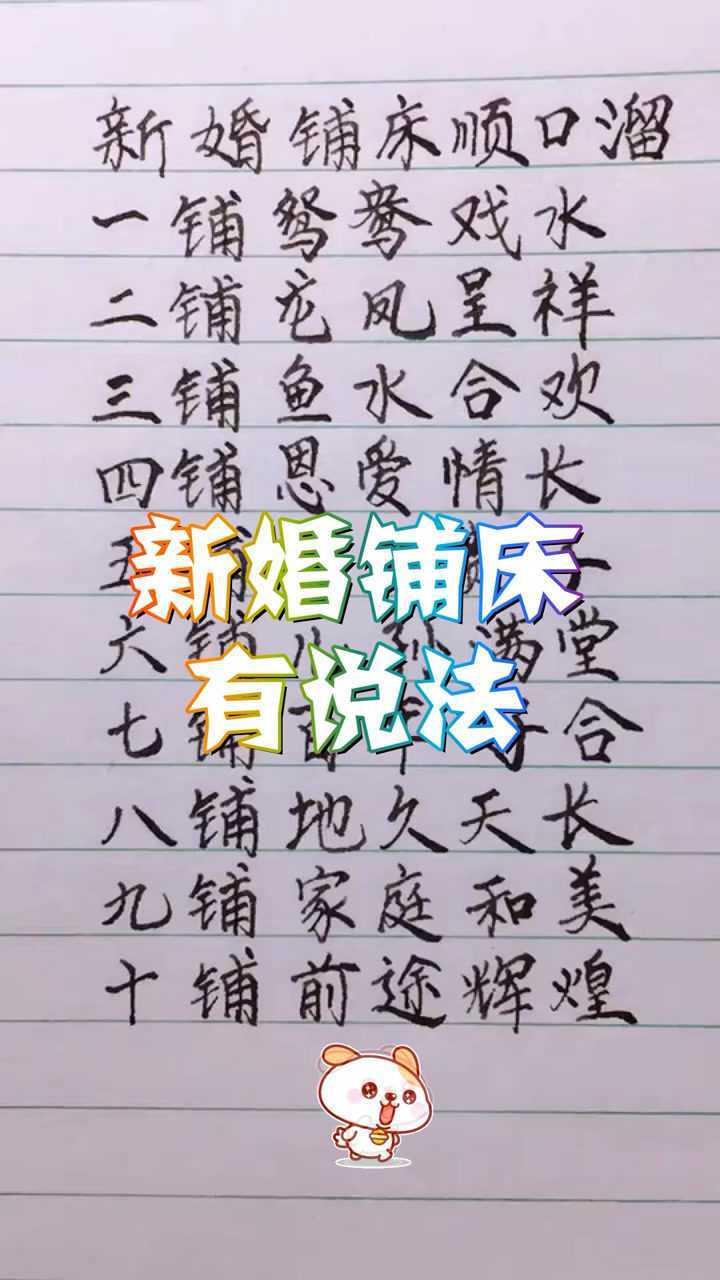 新婚铺床顺口溜
一铺鸳鸯戏水
二铺龙凤呈祥
三铺鱼水合欢
四铺恩爱情长
五
新婚铺床
六铺儿孙满堂
有说法
七铺百年好合
八铺地久天长
九铺家庭和美
十铺前途辉煌